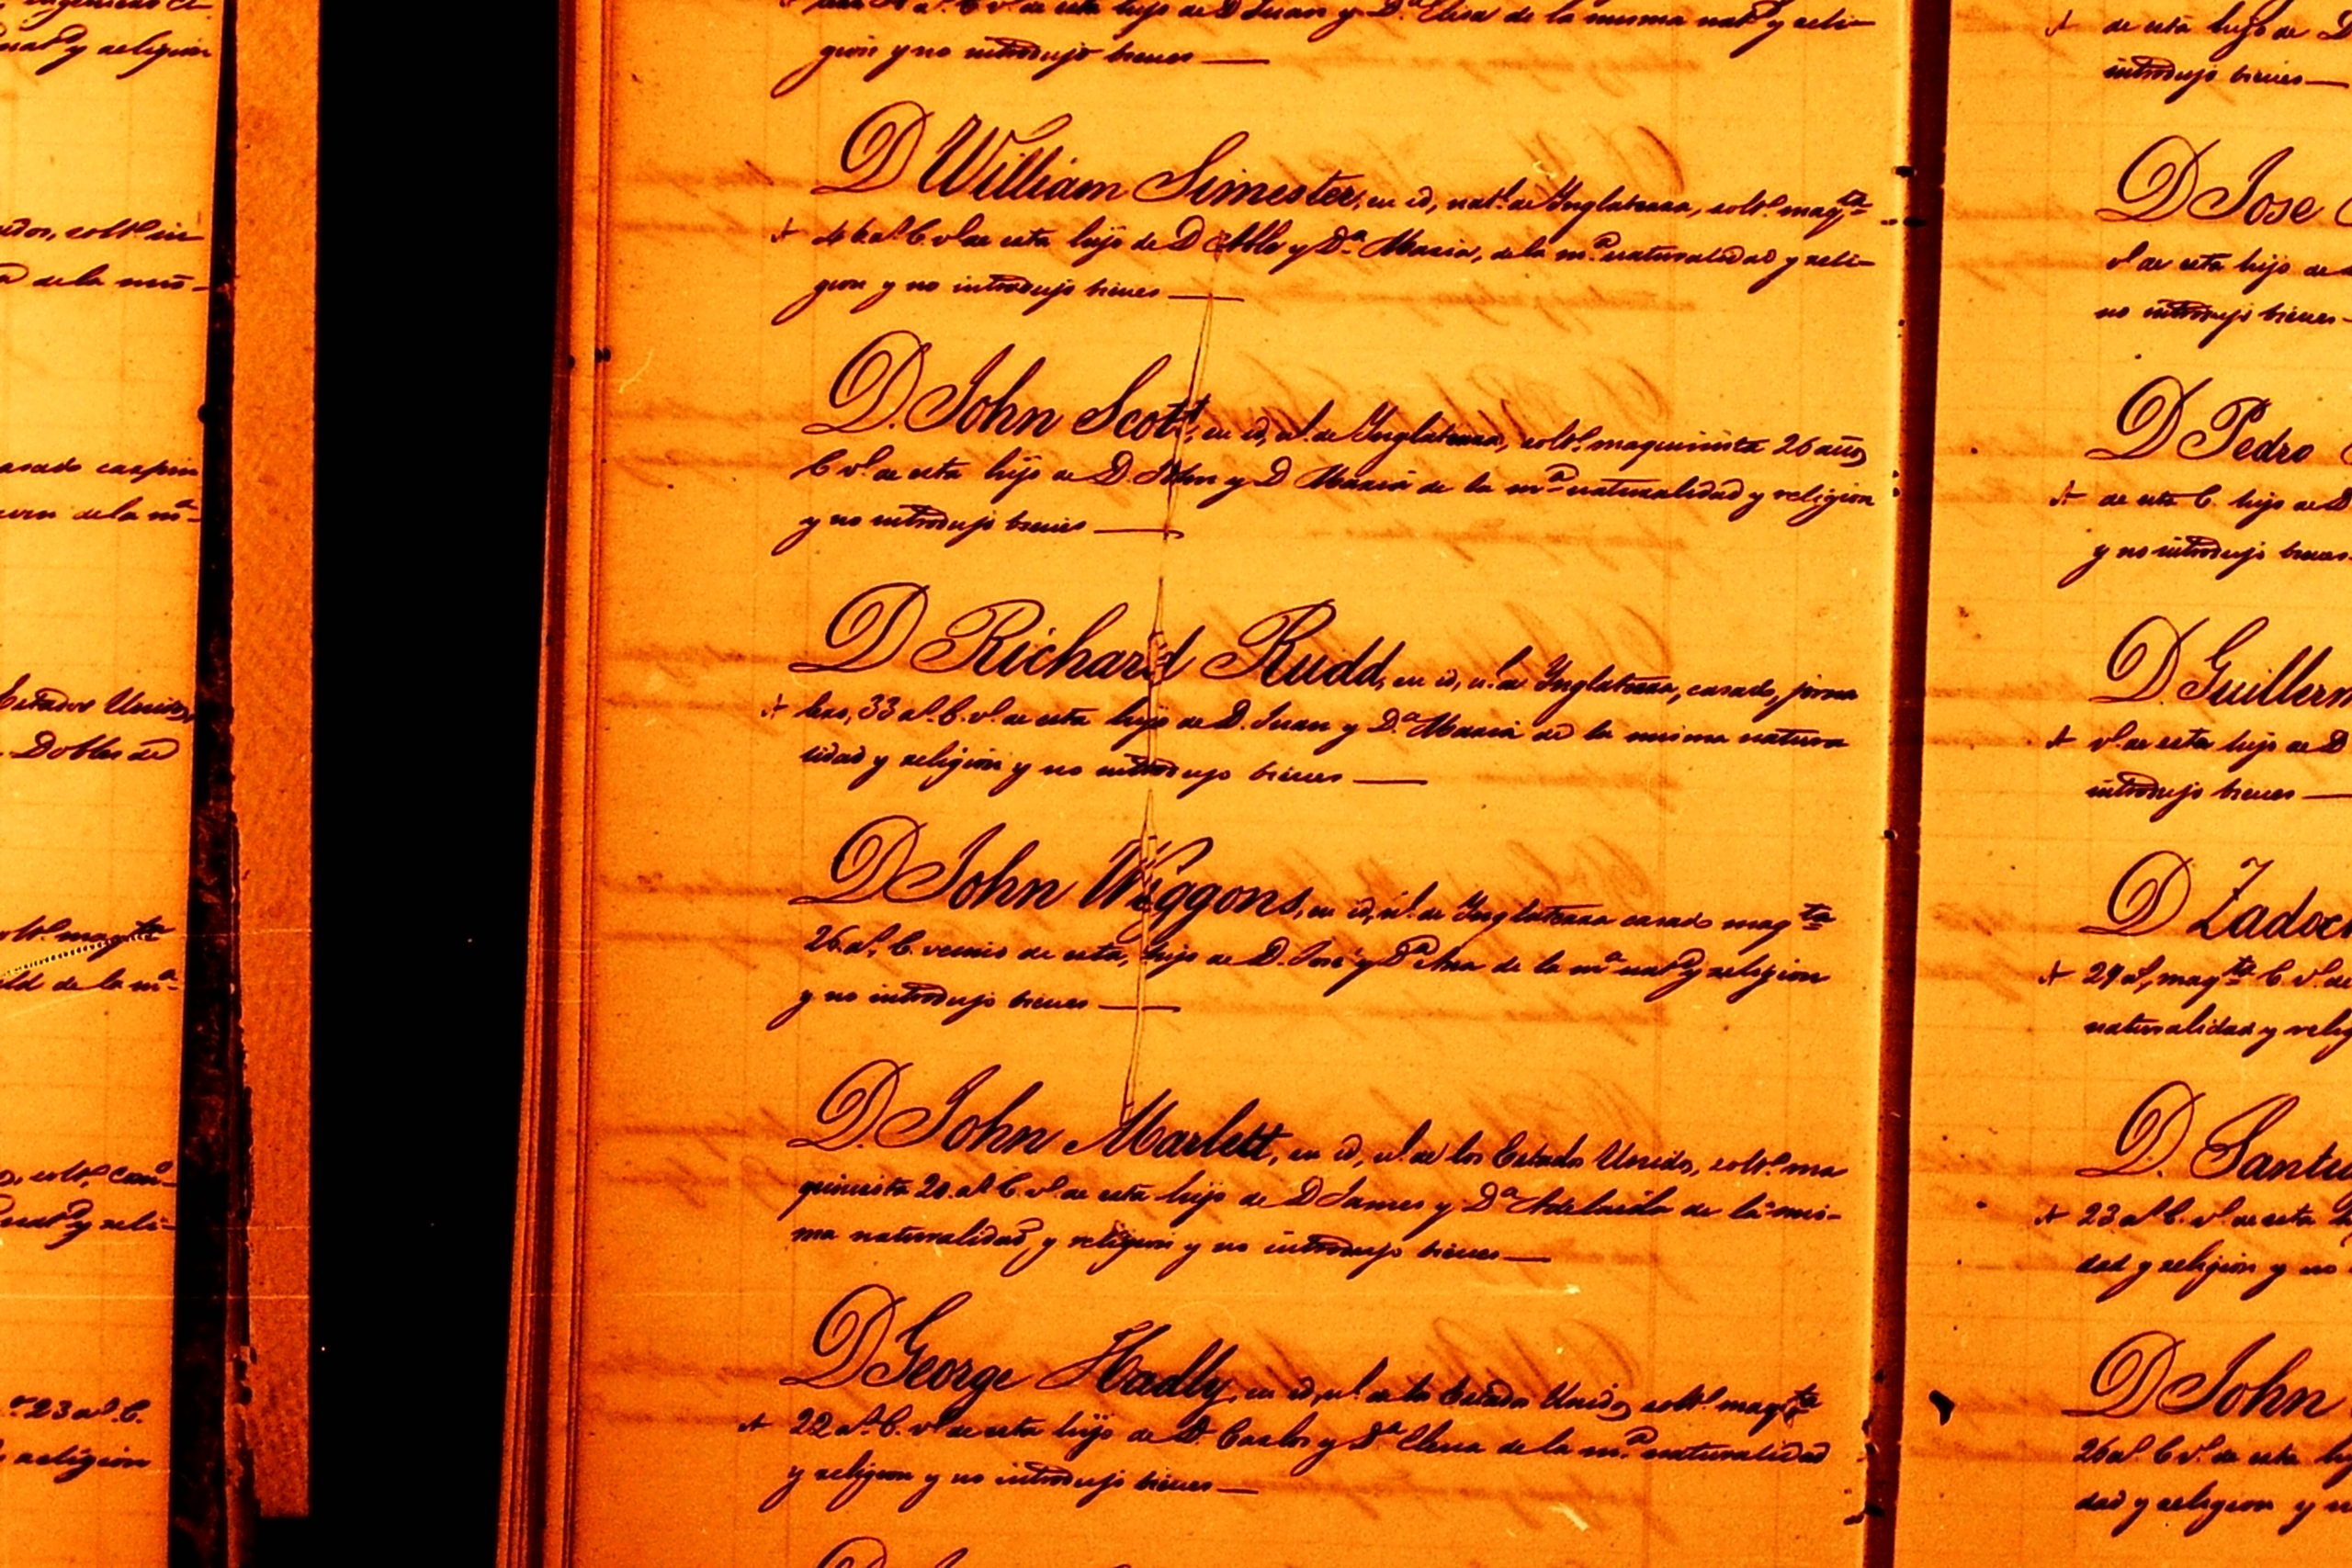 y religion
solt.º in
de la mis-
casado carpin
de la m.ª
Estados Unidos,
Dobles de
solt.º maq.ta
de la m.ª
solt.º
nat.d y reli-
23 a.s C.
religion
de esta hijo de D Juan y D.ª Elisa de la misma nat.d y reli-
gion y no introdujo bienes —
D William Simester, en id, nat.l de Inglaterra, solt.º maq.ta
46 a.s C v.º de esta hijo de D y D.ª Maria, de la m.ª naturalidad y reli-
gion y no introdujo bienes —
D. John Scott, en id, n.l de Inglaterra, solt.º maquinista 26 años
C v.º de esta hijo de D. John y D Maria de la m.ª naturalidad y religion
y no introdujo bienes —
D Richard Rudd, en id, n.l de Inglaterra, casado, jorna
lero, 33 a.s C. v.º de esta hijo de D. Juan y D.ª Maria de la misma natura
lidad y religion y no introdujo bienes —
D John Wiggons, en id, n.l de Inglaterra casado maq.ta
26 a.s C. vecino de esta, hijo de D. José y D.ª Ana de la m.ª nat.d y religion
y no introdujo bienes —
D. John Marlett, en id, n.l de los Estados Unidos, solt.º ma
quinista 20 a.s C. v.º de esta hijo de D James y D.ª Adelaida de la mis-
ma naturalidad y religion y no introdujo bienes —
D George Hadly, en id, n.l de los Estados Unidos solt.º maq.ta
22 a.s C. v.º de esta hijo de D. Carlos y D.ª Elena de la m.ª naturalidad
y religion y no introdujo bienes —
de esta hijo de D
introdujo bienes —
D Jose
v.º de esta hijo de
no introdujo bienes —
D Pedro
de esta C. hijo de D
y no introdujo bienes
D. Guillerm
v.º de esta hijo de D
introdujo bienes —
D Zadoc
29 a.s, maq.ta C. v.º de
naturalidad y relig
D. Santi
23 a.s C. v.º de esta
dad y religion y no
D John
26 a.s C v.º de esta
dad y religion y